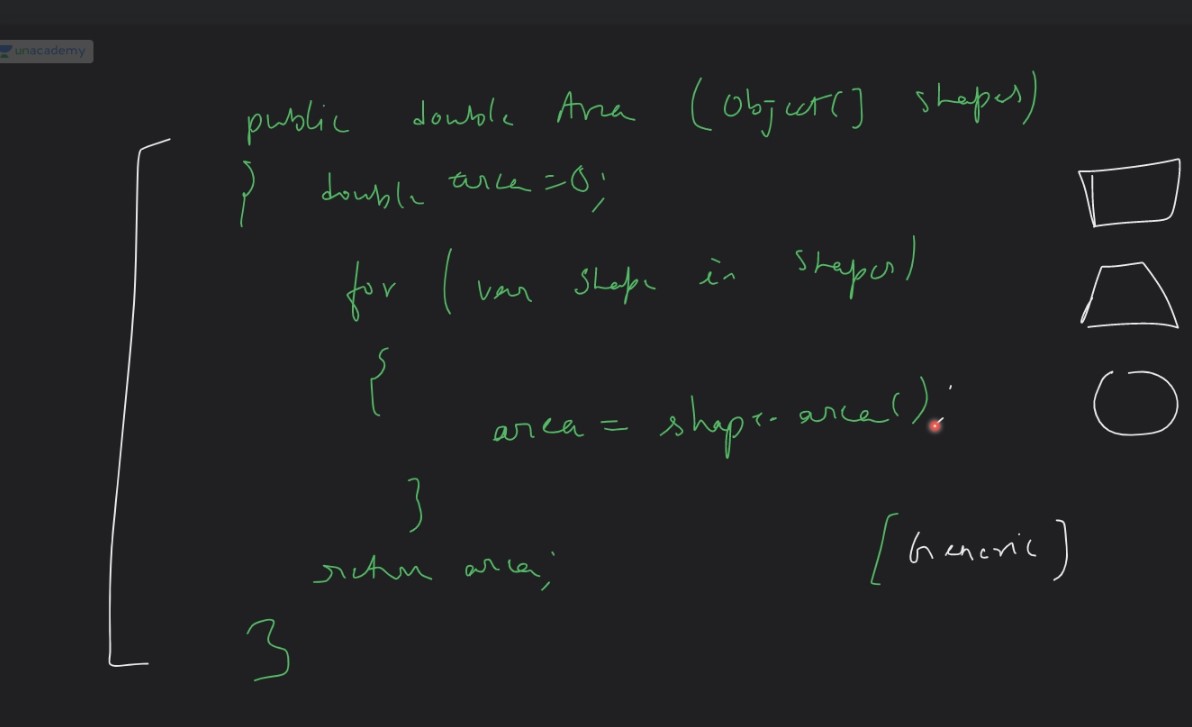 unacademy
public double Area (Object[] shapes)
{ double area = 0;
for (var shape in shapes)
{
area = shape.area();
}
return area;
[Generic]
}